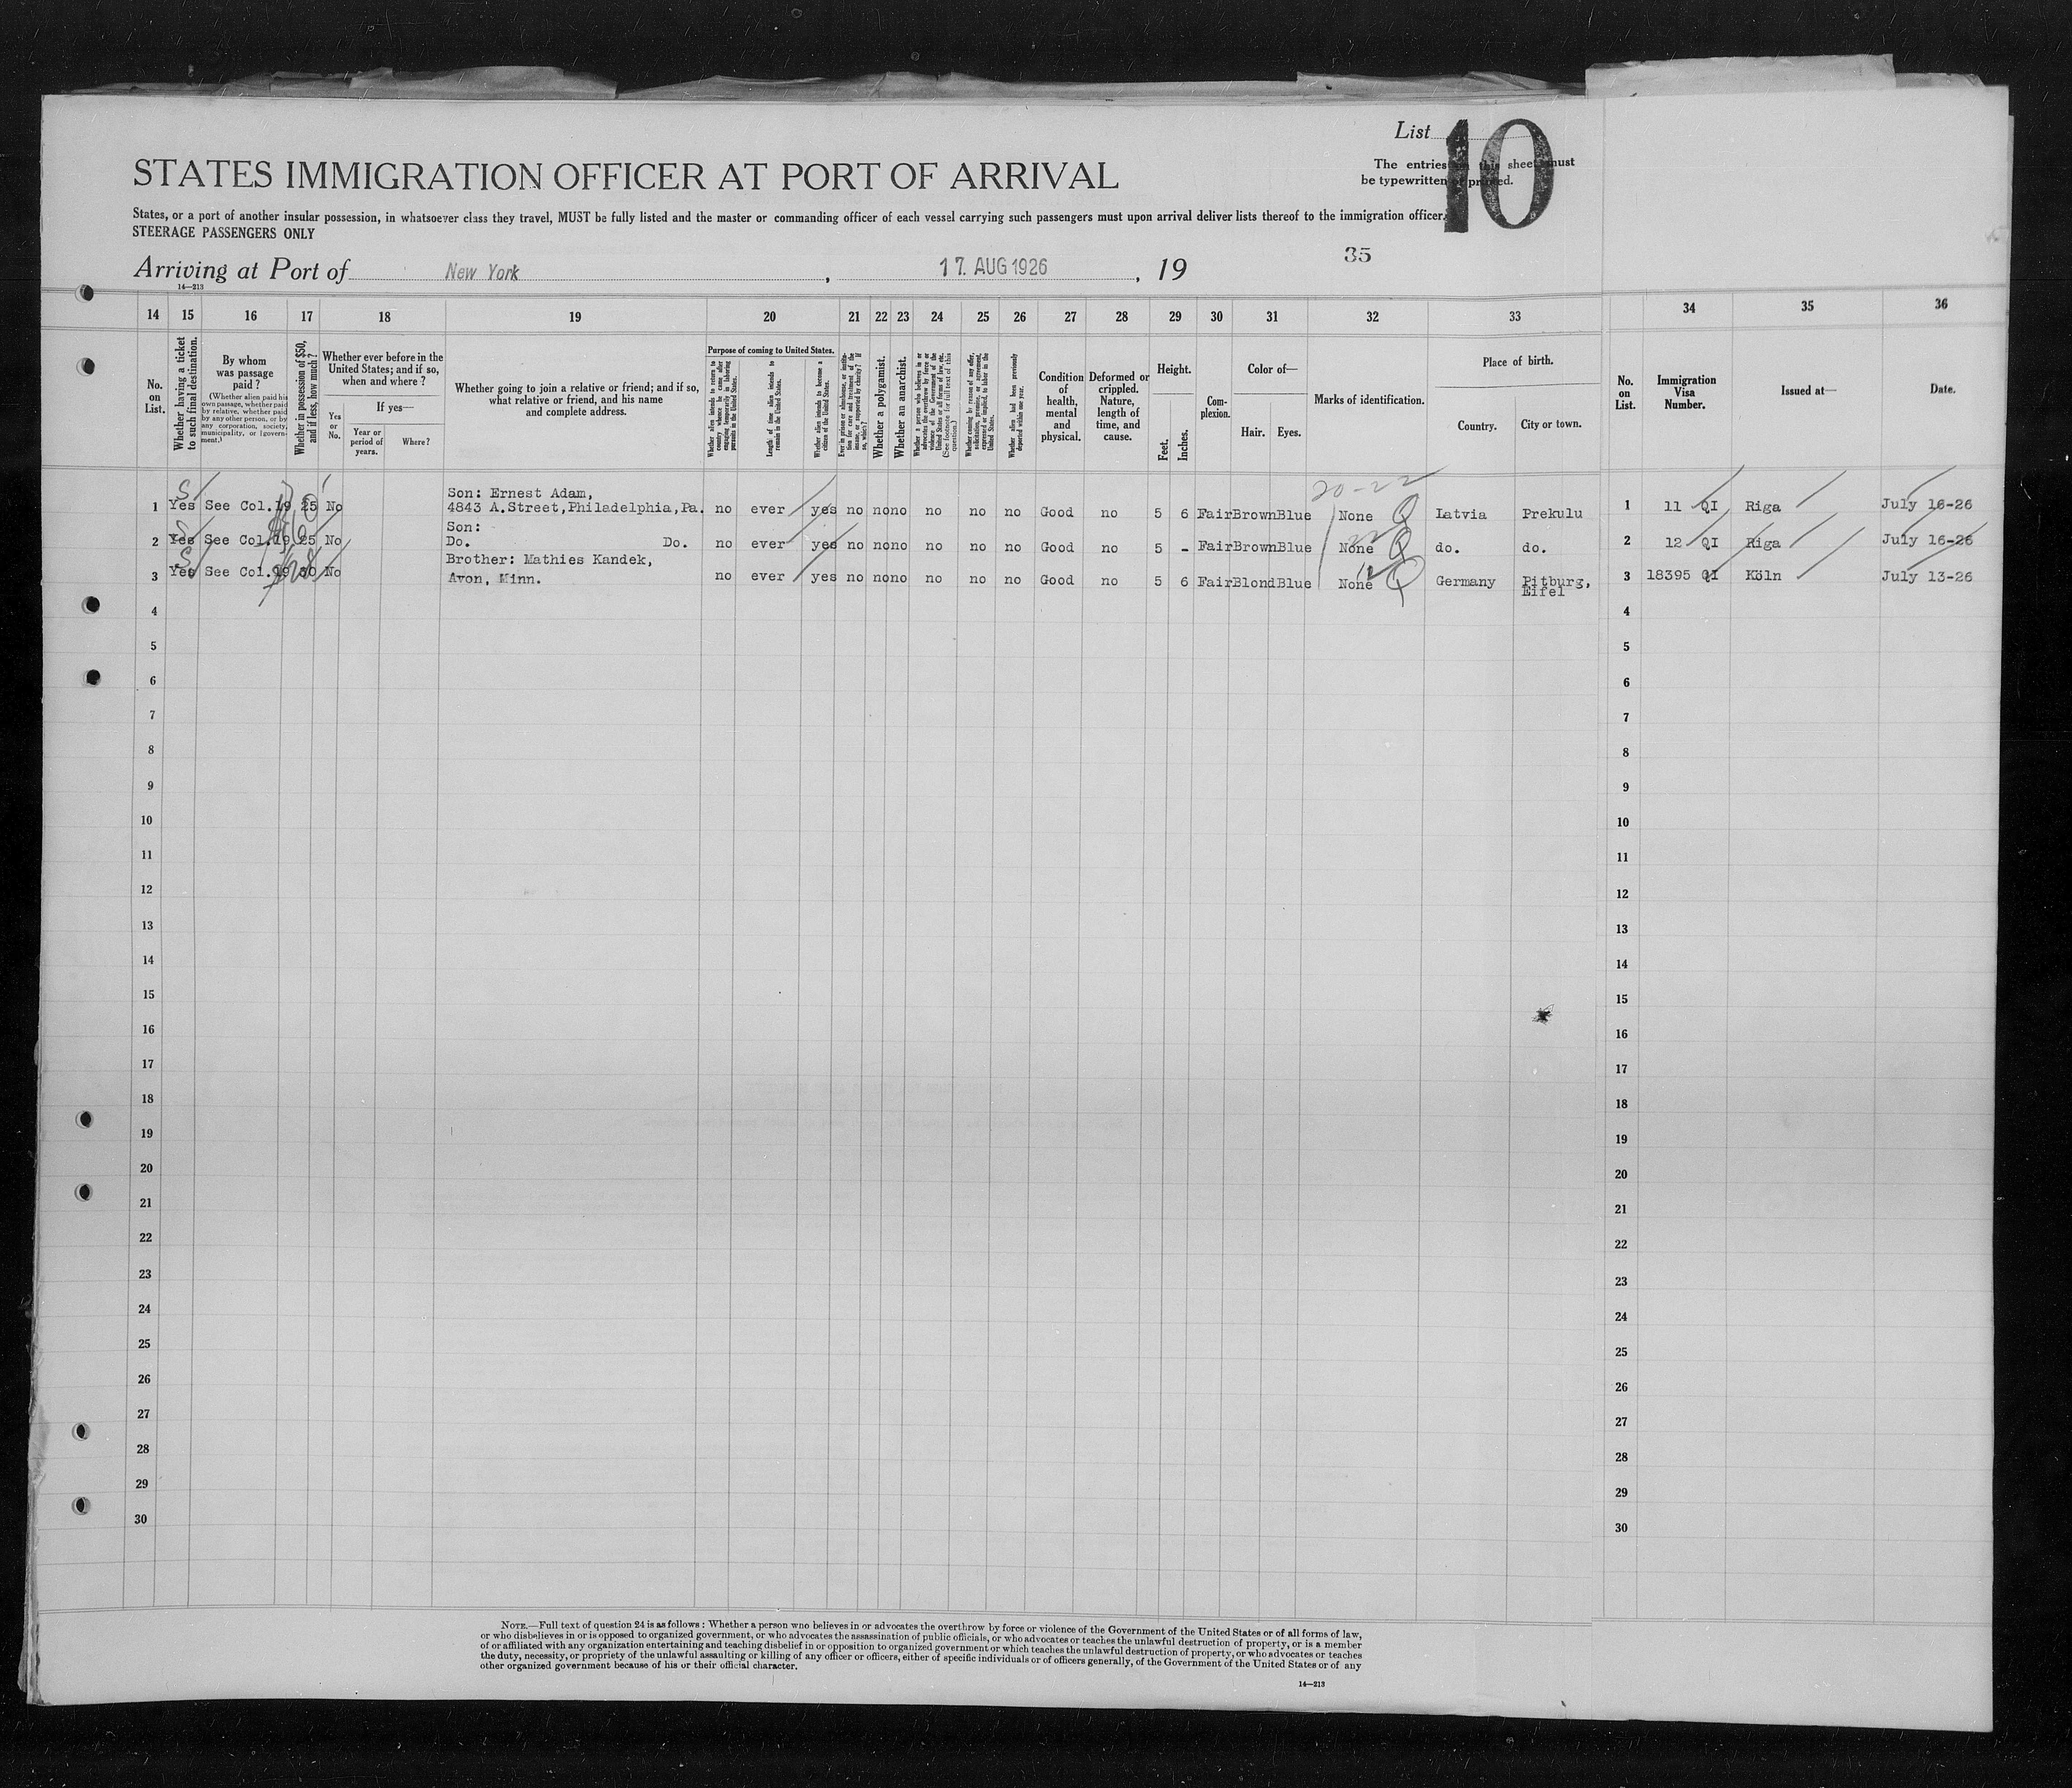 List 10
The entries on this sheet must
be typewritten or printed.
STATES IMMIGRATION OFFICER AT PORT OF ARRIVAL
States, or a port of another insular possession, in whatsoever class they travel, MUST be fully listed and the master or commanding officer of each vessel carrying such passengers must upon arrival deliver lists thereof to the immigration officer.
STEERAGE PASSENGERS ONLY
35
Arriving at Port of New York, 17. AUG 1926, 19
14—213
14 15 16 17 18 19 20 21 22 23 24 25 26 27 28 29 30 31 32 33 34 35 36
No. on List.
Whether having a ticket to such final destination.
By whom was passage paid?
(Whether alien paid his own passage, whether paid by relative, whether paid by any other person, or by any corporation, society, municipality, or government.)
Whether in possession of $50, and if less, how much?
Whether ever before in the United States; and if so, when and where?
Yes or No.
If yes—
Year or period of years.
Where?
Whether going to join a relative or friend; and if so, what relative or friend, and his name and complete address.
Purpose of coming to United States.
Whether alien intends to return to country whence he came after engaging temporarily in laboring pursuits in the United States.
Length of time alien intends to remain in the United States.
Whether alien intends to become a citizen of the United States.
Ever in prison or almshouse, or institution for care and treatment of the insane, or supported by charity? If so, which?
Whether a polygamist.
Whether an anarchist.
Whether coming by reason of any offer, solicitation, promise, or agreement, expressed or implied, to labor in the United States.
Whether alien had been previously deported within one year.
Condition of health, mental and physical.
Deformed or crippled. Nature, length of time, and cause.
Height.
Feet.
Inches.
Complexion.
Color of—
Hair.
Eyes.
Marks of identification.
Place of birth.
Country.
City or town.
No. on List.
Immigration Visa Number.
Issued at—
Date.
20-22
Son: Ernest Adam,
1 S Yes See Col.19 25 No 4843 A.Street,Philadelphia,Pa. no ever yes no no no no no no Good no 5 6 Fair Brown Blue None Q Latvia Prekulu 1 11 QI Riga July 16-26
Son:
2 S Yes See Col.19 25 No Do. Do. no ever yes no no no no no no Good no 5 - Fair Brown Blue None Q do. do. 2 12 QI Riga July 16-26
Brother: Mathies Kandek,
3 S Yes See Col.19 No Avon, Minn. no ever yes no no no no no no Good no 5 6 Fair Blond Blue None Q Germany Pitburg, 3 18395 QI Köln July 13-26
Eifel
4 4
5 5
6 6
7 7
8 8
9 9
10 10
11 11
12 12
13 13
14 14
15 15
16 16
17 17
18 18
19 19
20 20
21 21
22 22
23 23
24 24
25 25
26 26
27 27
28 28
29 29
30 30
NOTE.—Full text of question 24 is as follows: Whether a person who believes in or advocates the overthrow by force or violence of the Government of the United States or of all forms of law,
or who disbelieves in or is opposed to organized government, or who advocates the assassination of public officials, or who advocates or teaches the unlawful destruction of property, or is a member
of or affiliated with any organization entertaining and teaching disbelief in or opposition to organized government or which teaches the unlawful destruction of property, or who advocates or teaches
the duty, necessity, or propriety of the unlawful assaulting or killing of any officer or officers, either of specific individuals or of officers generally, of the Government of the United States or of any
other organized government because of his or their official character.
14—213